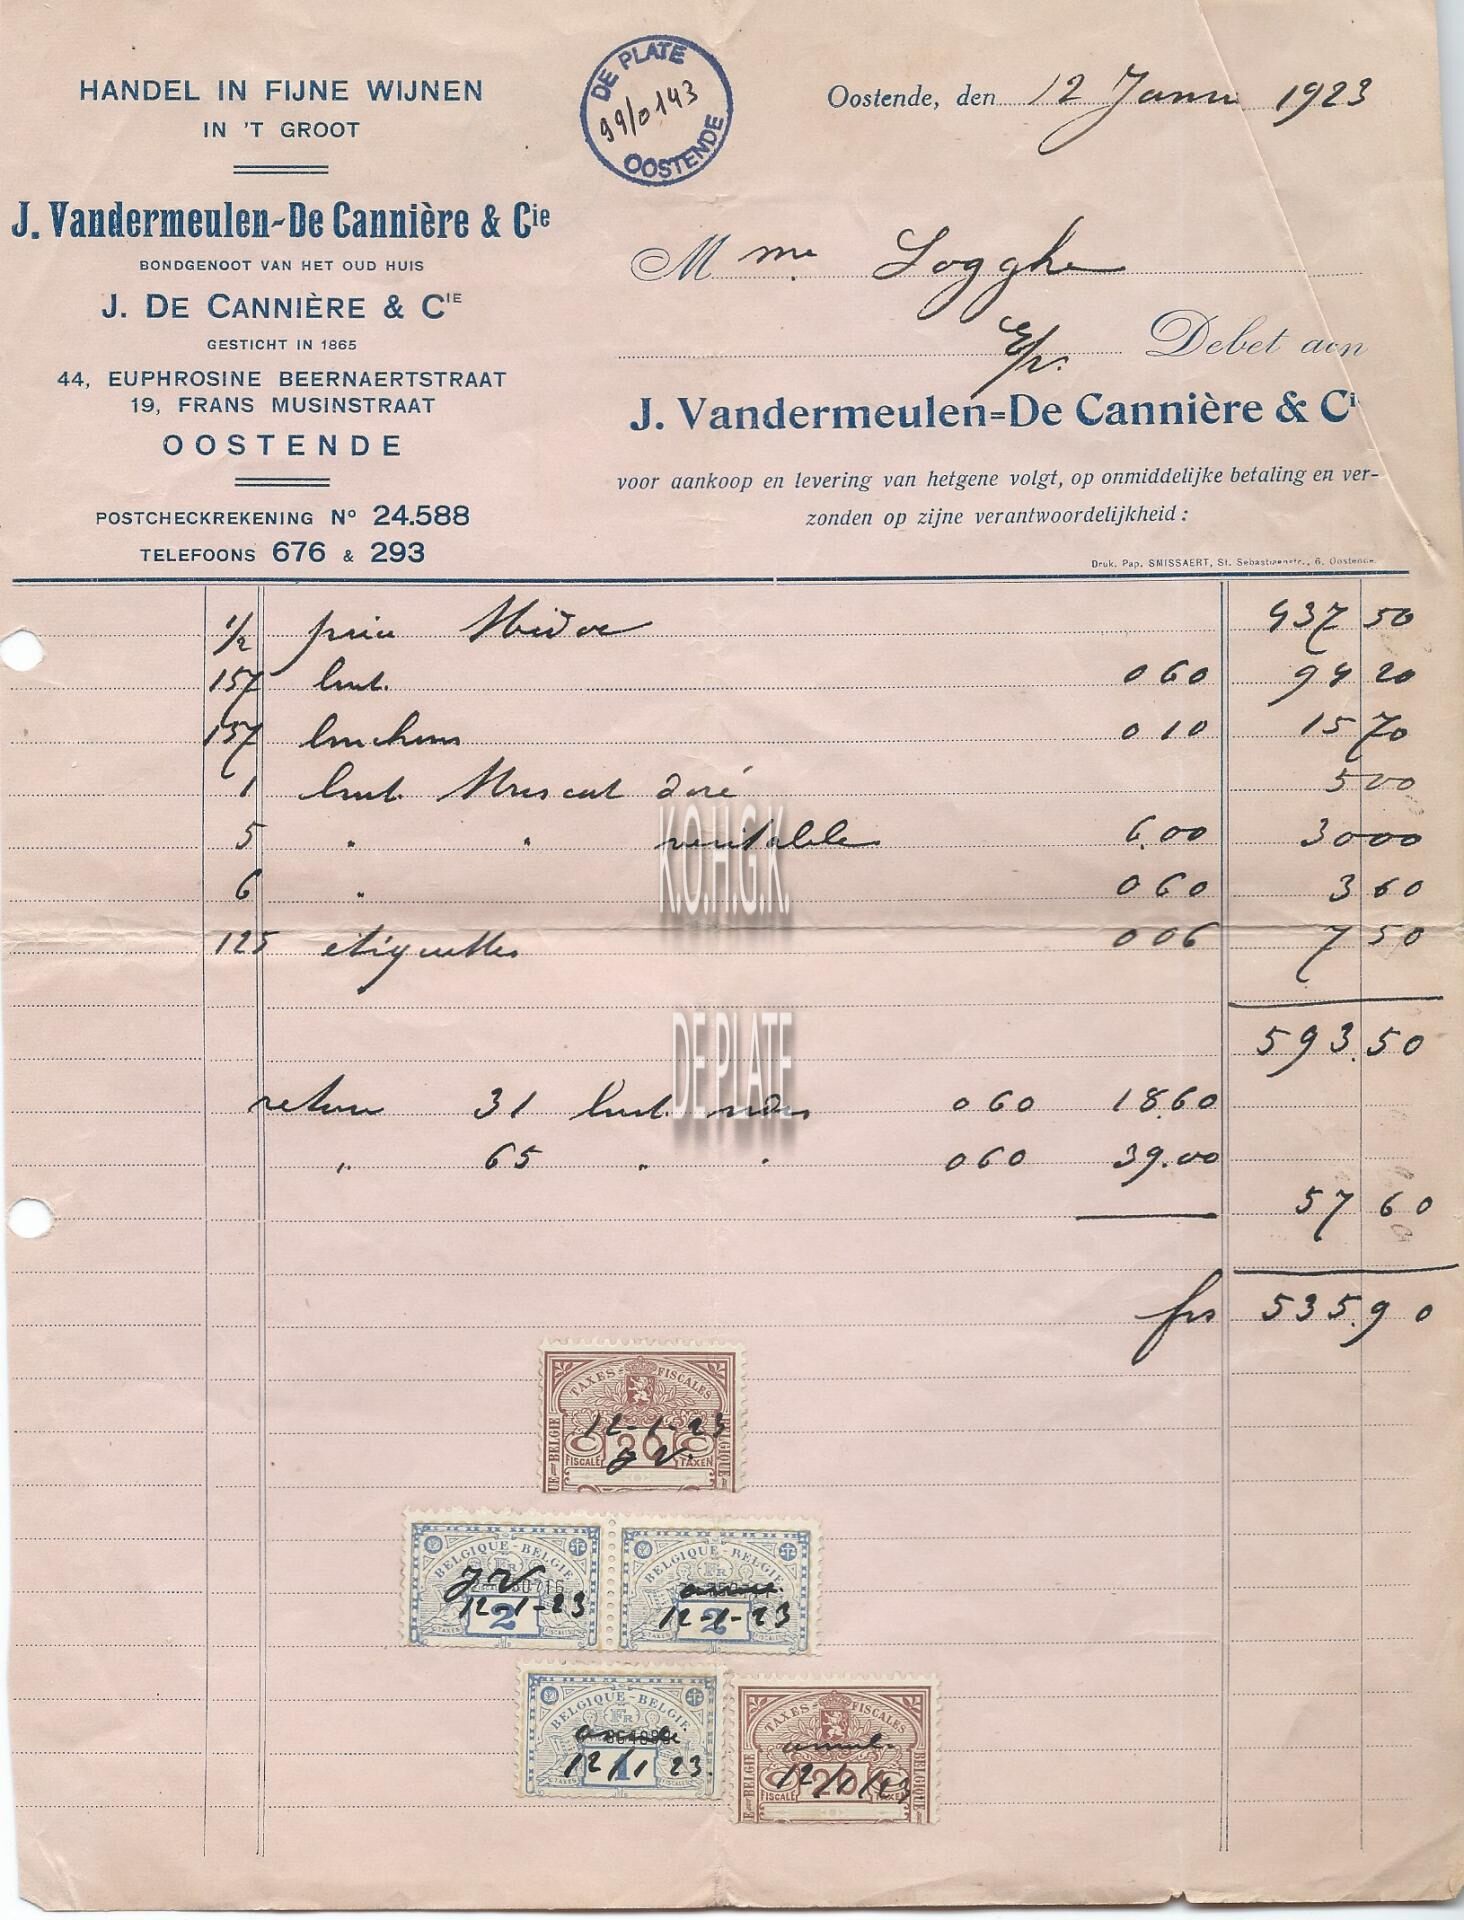 HANDEL IN FIJNE WIJNEN
IN 'T GROOT
J. Vandermeulen-De Cannière & Cie
BONDGENOOT VAN HET OUD HUIS
J. DE CANNIÈRE & CIE
GESTICHT IN 1865
44, EUPHROSINE BEERNAERTSTRAAT
19, FRANS MUSINSTRAAT
OOSTENDE
POSTCHECKREKENING No 24.588
TELEFOONS 676 & 293
DE PLATE
99/0143
OOSTENDE
Oostende, den 12 1923
Mme Logghe
E/v. Debet aan
J. Vandermeulen=De Cannière & Ci
voor aankoop en levering van hetgene volgt, op onmiddelijke betaling en ver-
zonden op zijne verantwoordelijkheid :
Druk. Pap. SMISSAERT, St. Sebastiaanstr., 6, Oostende.
1/2 437 50
157 bout. 0 60 94 20
157 bouchons 0 10 15 70
1 bout. Muscat doré 5 00
5 " " veritable 6.00 30 00
6 " 0 60 3 60
125 etiquettes 0 06 7 50
593.50
retour 31 bout. vides 0 60 18.60
" 65 " " 0 60 39.00
57 60
frs 535.90
K.O.H.G.K.
DE PLATE
TAXES FISCALES
12-1-23
20
J V.
FISCALE TAXEN
BELGIE BELGIQUE
BELGIQUE - BELGIE
FR
J V
12-1-23
2
BELGIQUE - BELGIE
FR
12-1-23
2
BELGIQUE - BELGIE
FR
12/1 23.
1
TAXES FISCALES
annul.
12/1/23
20
FISCALE TAXEN
BELGIE BELGIQUE